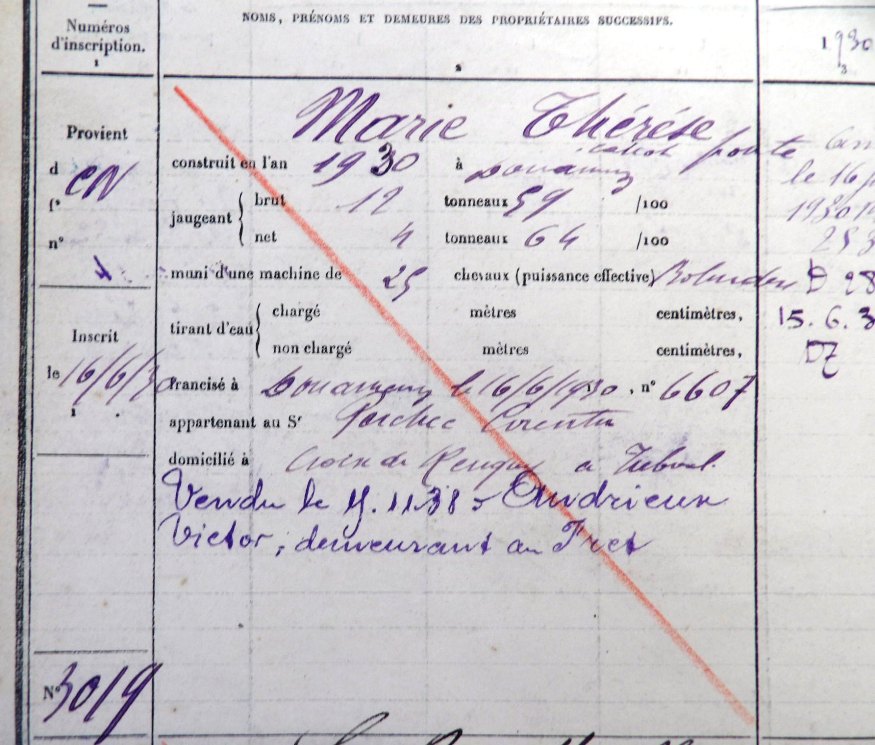 NOMS, PRÉNOMS ET DEMEURES DES PROPRIÉTAIRES SUCCESSIFS.
Numéros
d'inscription.
1
2
1930
3
Marie Thérése
canot ponté
Provient
d CN
f°
n°
construit en l'an 1930 à Douarnenez
le 16
jaugeant { brut 12 tonneaux 59 /100
1930
net 4 tonneaux 64 /100
253
muni d'une machine de 25 chevaux (puissance effective) Bolinders
D 98
tirant d'eau { chargé mètres centimètres,
15.6.3
non chargé mètres centimètres,
DZ
Inscrit
le 16/6/30
1
francisé à Douarnenez le 16/6/1930, n° 6607
appartenant au Sr Corentin
domicilié à Croix de à Tréboul.
Vendu le 11.38 à Andrieux
Victor, demeurant au Fret
N° 3019